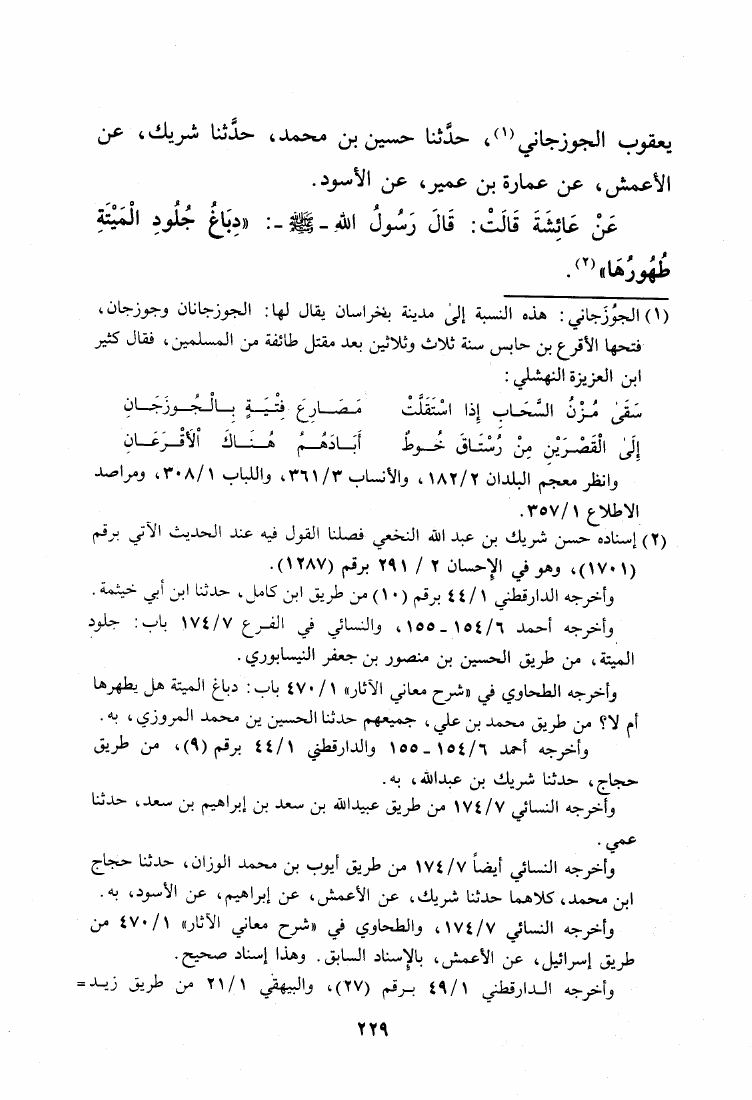 يعقوب الجوزجاني(١)، حدَّثنا حسين بن محمد، حدَّثنا شريك، عن
الأعمش، عن عمارة بن عمير، عن الأسود.
عَنْ عَائِشَةَ قَالَتْ: قَالَ رَسُولُ اللهِ ـ ﷺ ـ: «دِبَاغُ جُلُودِ الْمَيْتَةِ
طُهُورُهَا»(٢).
(١) الجوْزَجاني: هذه النسبة إلىٰ مدينة بخراسان يقال لها: الجوزجانان وجوزجان،
فتحها الأقرع بن حابس سنة ثلاث وثلاثين بعد مقتل طائفة من المسلمين، فقال كثير
ابن العزيزة النهشلي:
سَقَىٰ مُزْنُ السَّحَابِ إِذا اسْتَقَلَّتْ مَصَارِعَ فِتْيَةٍ بِالْجُوزَجَانِ
إِلَىٰ الْقَصْرَيْنِ مِنْ رُسْتَاقَ خُوطٌ أَبَادَهُمُ هُنَاكَ الْأَقْرَعَانِ
وانظر معجم البلدان ١٨٢/٢، والأنساب ٣٦١/٣، واللباب ٣٠٨/١، ومراصد
الاطلاع ٣٥٧/١.
(٢) إسناده حسن شريك بن عبد الله النخعي فصلنا القول فيه عند الحديث الآتي برقم
(١٧٠١)، وهو في الإحسان ٢ / ٢٩١ برقم (١٢٨٧).
وأخرجه الدارقطني ٤٤/١ برقم (١٠) من طريق ابن كامل، حدثنا ابن أبي خيثمة.
وأخرجه أحمد ١٥٤/٦ ـ ١٥٥، والنسائي في الفرع ١٧٤/٧ باب: جلود
الميتة، من طريق الحسين بن منصور بن جعفر النيسابوري.
وأخرجه الطحاوي في «شرح معاني الآثار» ٤٧٠/١ باب: دباغ الميتة هل يطهرها
أم لا؟ من طريق محمد بن علي، جميعهم حدثنا الحسين بن محمد المروزي، به.
وأخرجه أحمد ١٥٤/٦ ـ ١٥٥ والدارقطني ٤٤/١ برقم (٩)، من طريق
حجاج، حدثنا شريك بن عبدالله، به.
وأخرجه النسائي ١٧٤/٧ من طريق عبيدالله بن سعد بن إبراهيم بن سعد، حدثنا
عمي.
وأخرجه النسائي أيضاً ١٧٤/٧ من طريق أيوب بن محمد الوزان، حدثنا حجاج
ابن محمد، كلاهما حدثنا شريك، عن الأعمش، عن إبراهيم، عن الأسود، به.
وأخرجه النسائي ١٧٤/٧، والطحاوي في «شرح معاني الآثار» ٤٧٠/١ من
طريق إسرائيل، عن الأعمش، بالإسناد السابق. وهذا إسناد صحيح.
وأخرجه الدارقطني ٤٩/١ برقم (٢٧)، والبيهقي ٢١/١ من طريق زيد=
٢٢٩